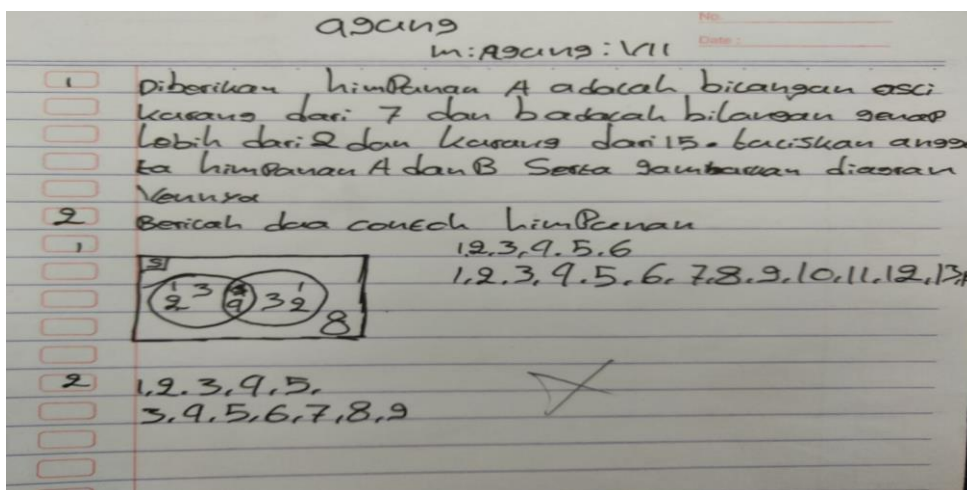 agung
No.
m: Agung : VII
Date :
1 Diberikan, himpunan A adalah bilangan asli
kurang dari 7 dan b adalah bilangan genap
Lebih dari 2 dan kurang dari 15. tuliskan anggo
ta himpunan A dan B Serta gambarkan diagram
Vennya
2 Berilah dua contoh himpunan
1 1,2,3,4.5.6
1,2,3,4.5,6,7,8,9,10,11,12,13,
S
1 2 3 4 3 1 2
8
2 1,2.3,4,5,
3,4,5,6,7,8,9